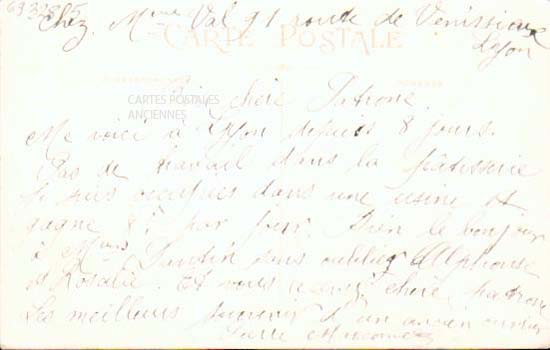 693285
Chez Mme Val 91 route de Venissieux
CARTE POSTALE
Lyon
chère Patrone
CARTES POSTALES
ANCIENNES
Me voici à Lyon depuis 8 jours.
Pas de travail dans la pâtisserie
Je suis dans une usine et
gagne par jour. bien le bonjour
à sans oublier Alphonse
et Rosalie. Et vous chère patrone
Les meilleurs souvenir d'un ancien ouvrier